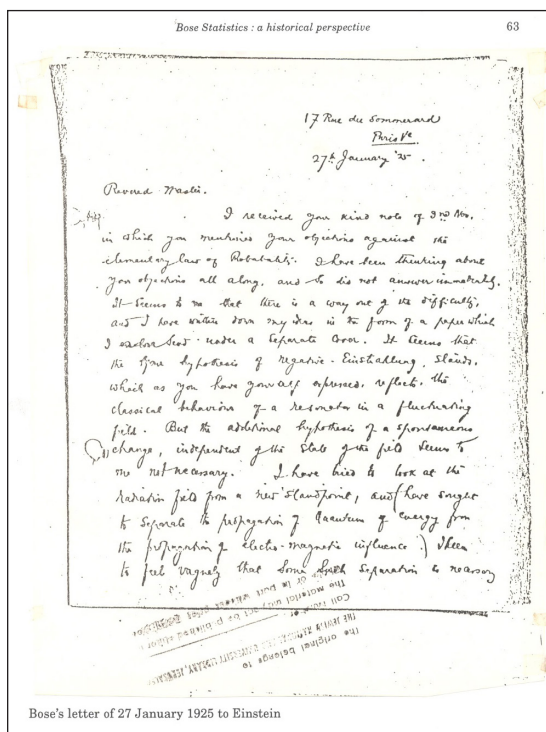 Bose Statistics : a historical perspective 63
17 Rue du Sommerard
Paris Ve
27th January '25.
Revered Master.
I received your kind note of 3rd Nov.
in which you mentioned your objections against the
elementary law of Probability. I have been thinking about
your objections all along, and so did not answer immediately.
It seems to me that there is a way out of the difficulty,
and I have written down my ideas in the form of a paper which
I send under a separate cover. It seems that
the hypothesis of negative Einstrahlung stands,
which as you have yourself expressed, reflects the
classical behaviour of a resonator in a fluctuating
field. But the additional hypothesis of a spontaneous
change, independent of the state of the field seems to
me not necessary. I have tried to look at the
radiation field from a new standpoint, and have sought
to separate the propagation of Quantum of energy from
the propagation of electro-magnetic influence. I seem
to feel vaguely that some such separation is necessary
The original belongs to
THE JEWISH NATIONAL UNIVERSITY LIBRARY,
Bose's letter of 27 January 1925 to Einstein